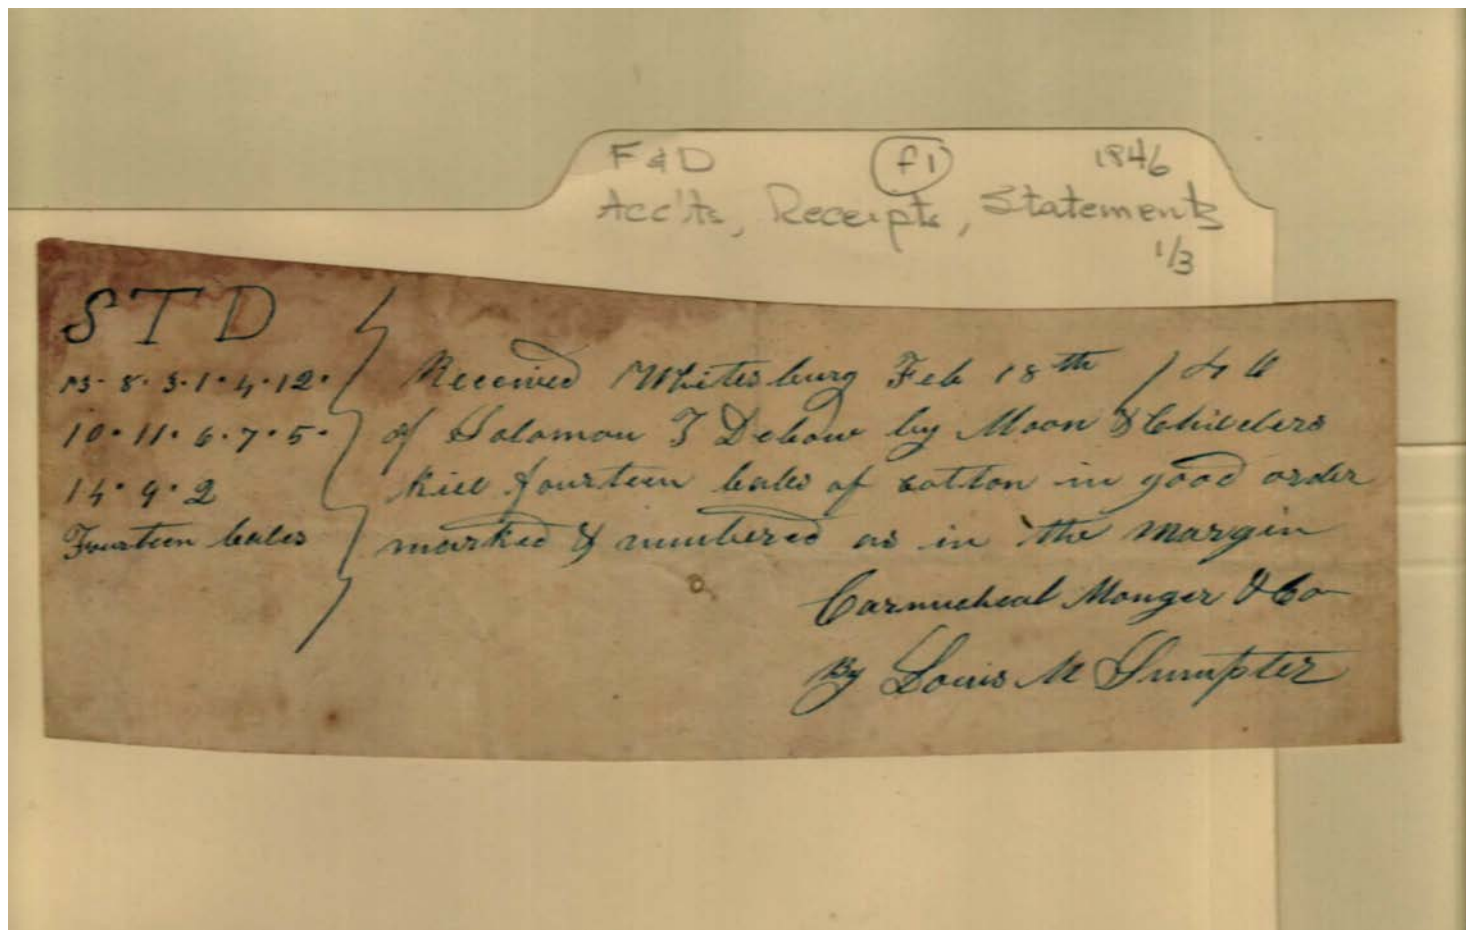 F & D f1 1846
Acc'ts, Receipts, Statements
1/3
STD
13 - 8 · 3 · 1 · 4 · 12 ·
10 · 11 · 6 · 7 · 5 ·
14 · 9 · 2
Fourteen bales
Received Whitesburg Feb 18th / 46
of Solomon T Debow by Moon & Childers
fourteen bales of cotton in good order
marked & numbered as in the margin
Carmicheal Monger & Co
By Louis M Sumpter